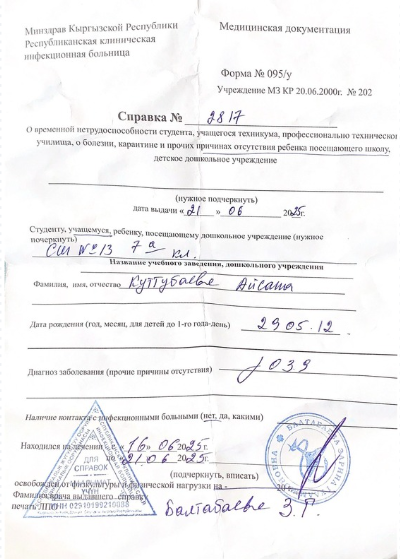 Минздрав Кыргызской Республики
Республиканская клиническая
инфекционная больница
Медицинская документация
Форма № 095/у
Учреждение МЗ КР 20.06.2000г. № 202
Справка № 2817
О временной нетрудоспособности студента, учащегося техникума, профессионально техническо
училища, о болезни, карантине и прочих причинах отсутствия ребенка посещающего школу,
детское дошкольное учреждение
(нужное подчеркнуть)
дата выдачи « 21 » 06 2025г.
Студенту, учащемуся, ребенку, посещающему дошкольное учреждение (нужное
почеркнуть)
СШ №13 7а кл.
Название учебного заведения, дошкольного учреждения
Фамилия, имя, отчество Айсаша
Дата рождения (год, месяц, для детей до 1-го года-день) 29 05.12.
Диагноз заболевания (прочие причины отсутствия) J039
Наличие контакта с инфекционными больными (нет, да, какими)
Находился на лечении с «16» 06 2025г.
по «21.06 2025г.
(подчеркнуть, вписать)
освобожден от физкультуры и физической нагрузки на - 20
Фамилия врача выдавшего справку
печать ЛПО Балтабаева З.Г.
ДЛЯ
СПРАВОК
БАЛТАБАЕВА ЗАРИНА